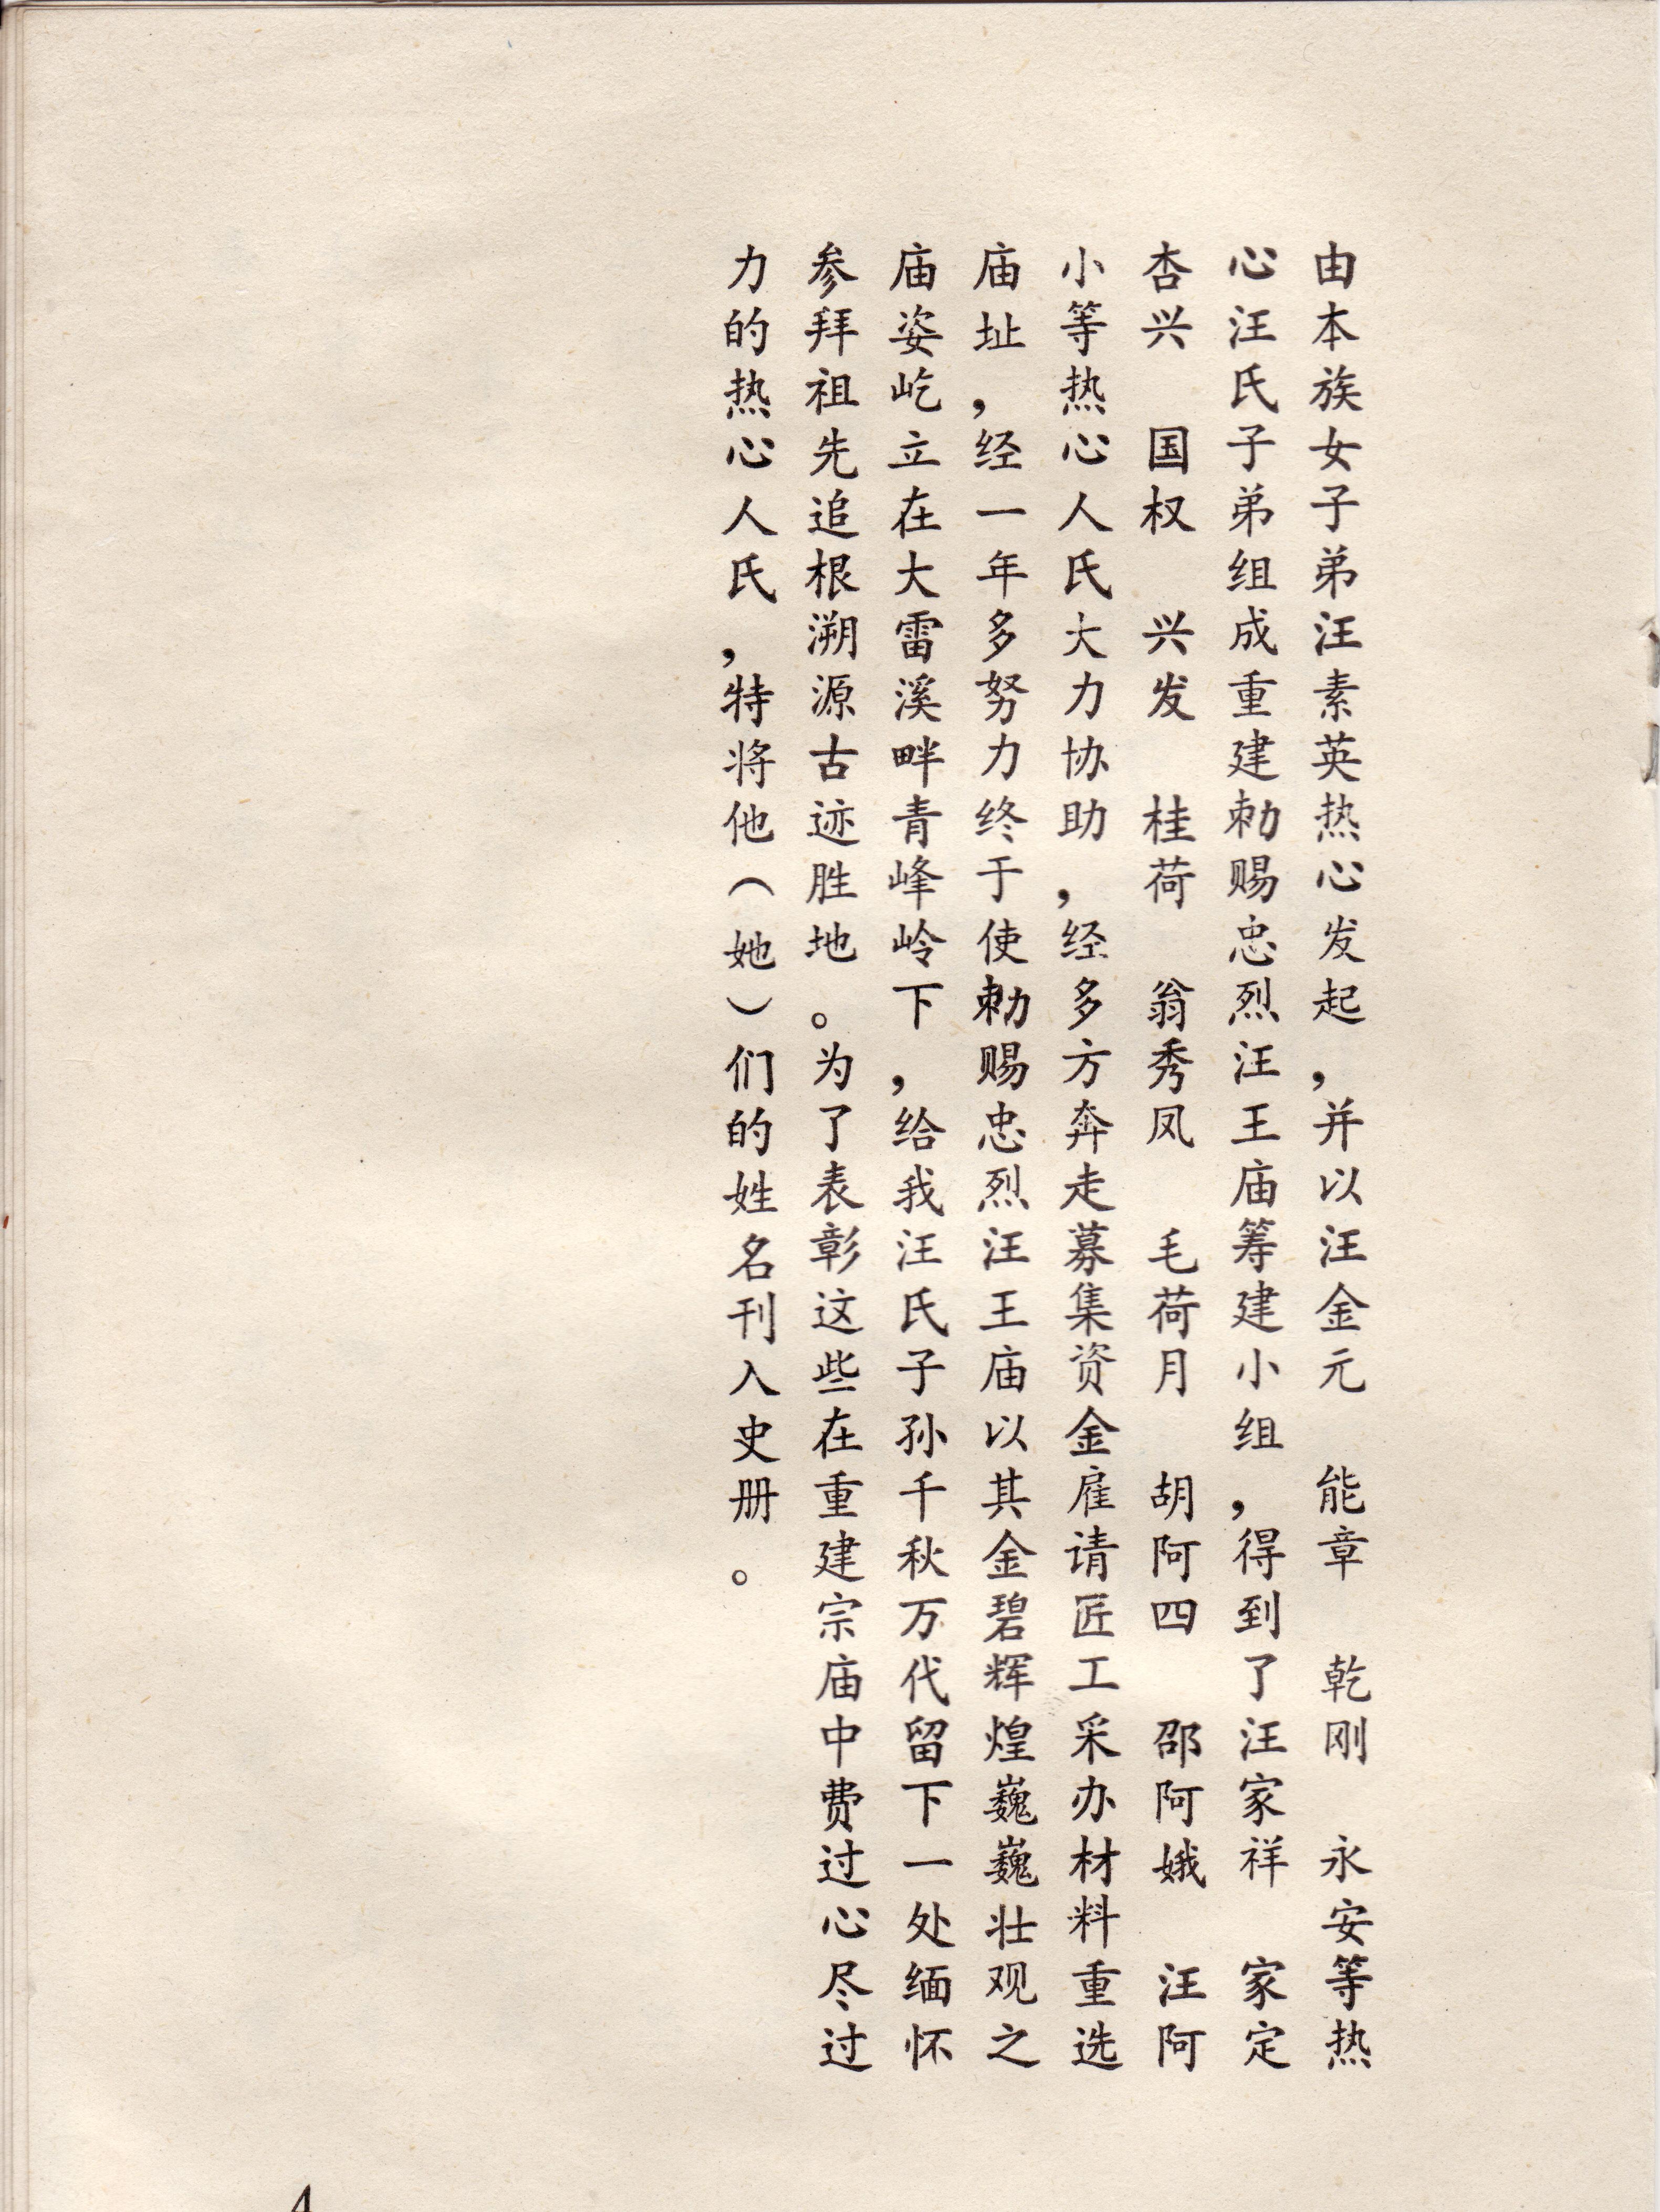 由本族女子弟汪素英热心发起，并以汪金元　能章　乾刚　永安等热
心汪氏子弟组成重建勅赐忠烈汪王庙筹建小组，得到了汪家祥　家定
杏兴　国权　兴发　桂荷　翁秀凤　毛荷月　胡阿四　邵阿娥　汪阿
小等热心人氏大力协助，经多方奔走募集资金雇请匠工采办材料重选
庙址，经一年多努力终于使勅赐忠烈汪王庙以其金碧辉煌巍巍壮观之
庙姿屹立在大雷溪畔青峰岭下，给我汪氏子孙千秋万代留下一处缅怀
参拜祖先追根溯源古迹胜地。为了表彰这些在重建宗庙中费过心尽过
力的热心人氏，特将他（她）们的姓名刊入史册。
4